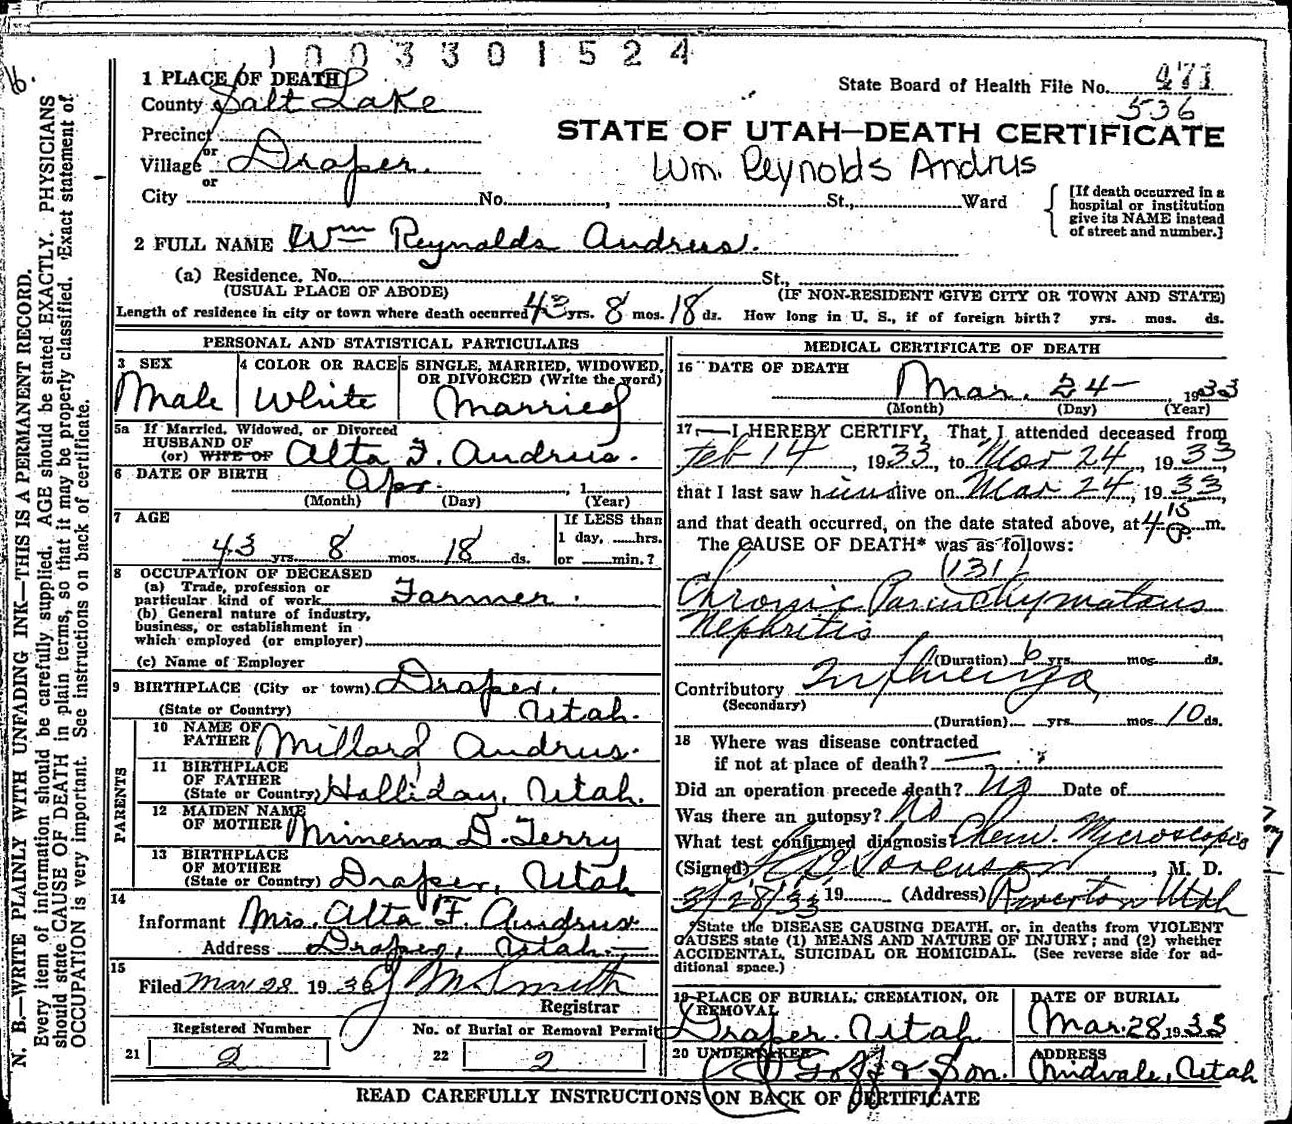 1003301524
1 PLACE OF DEATH
State Board of Health File No. 471
County Salt Lake
536
Precinct
or
Village Draper.
or
STATE OF UTAH—DEATH CERTIFICATE
Wm. Reynolds Andrus
City No. , St., Ward
[If death occurred in a
hospital or institution
give its NAME instead
of street and number.]
2 FULL NAME Wm Reynolds Andrus.
(a) Residence, No. St.,
(USUAL PLACE OF ABODE) (IF NON-RESIDENT GIVE CITY OR TOWN AND STATE)
Length of residence in city or town where death occurred 43 yrs. 8 mos. 18 ds. How long in U. S., if of foreign birth? yrs. mos. ds.
PERSONAL AND STATISTICAL PARTICULARS
3 SEX
Male
4 COLOR OR RACE
White
5 SINGLE, MARRIED, WIDOWED,
OR DIVORCED (Write the word)
Married
5a If Married, Widowed, or Divorced
HUSBAND OF
(or) WIFE OF Alta F. Andrus.
6 DATE OF BIRTH Apr. , 1
(Month) (Day) (Year)
7 AGE
43 yrs. 8 mos. 18 ds.
If LESS than
1 day, hrs.
or min.?
8 OCCUPATION OF DECEASED
(a) Trade, profession or
particular kind of work Farmer.
(b) General nature of industry,
business, or establishment in
which employed (or employer)
(c) Name of Employer
9 BIRTHPLACE (City or town) Draper.
(State or Country) Utah.
PARENTS
10 NAME OF
FATHER Millard Andrus.
11 BIRTHPLACE
OF FATHER
(State or Country) Halliday, Utah.
12 MAIDEN NAME
OF MOTHER Minerva D. Terry
13 BIRTHPLACE
OF MOTHER
(State or Country) Draper, Utah
14
Informant Mrs. Alta F. Andrus
Address Draper, Utah.
15
Filed Mar 28 1933 J M Smith
Registrar
Registered Number
21 2
No. of Burial or Removal Permit
22 2
MEDICAL CERTIFICATE OF DEATH
16 DATE OF DEATH
Mar. 24 — 1933
(Month) (Day) (Year)
17 — I HEREBY CERTIFY, That I attended deceased from
Feb 14, 1933, to Mar 24, 1933,
that I last saw him alive on Mar 24, 1933,
and that death occurred, on the date stated above, at 4 15 P. m.
The CAUSE OF DEATH* was as follows:
(131)
Chronic Parinchymatous
Nephritis
(Duration) 6 yrs. mos. ds.
Contributory Influenza,
(Secondary)
(Duration) yrs. mos. 10 ds.
18 Where was disease contracted
if not at place of death?
Did an operation precede death? No Date of
Was there an autopsy? No
What test confirmed diagnosis? Chem. Microscopic
(Signed) Sorenson, M. D.
3/28/33 19 (Address) Riverton Utah
*State the DISEASE CAUSING DEATH, or, in deaths from VIOLENT
CAUSES state (1) MEANS AND NATURE OF INJURY; and (2) whether
ACCIDENTAL, SUICIDAL OR HOMICIDAL. (See reverse side for ad-
ditional space.)
19 PLACE OF BURIAL, CREMATION, OR
REMOVAL
Draper. Utah
DATE OF BURIAL
Mar. 28, 1933
20 UNDERTAKER
Goff & Son.
ADDRESS
Midvale, Utah
READ CAREFULLY INSTRUCTIONS ON BACK OF CERTIFICATE
N. B.—WRITE PLAINLY WITH UNFADING INK—THIS IS A PERMANENT RECORD.
Every item of information should be carefully supplied. AGE should be stated EXACTLY. PHYSICIANS
should state CAUSE OF DEATH in plain terms, so that it may be properly classified. Exact statement of
OCCUPATION is very important. See instructions on back of certificate.